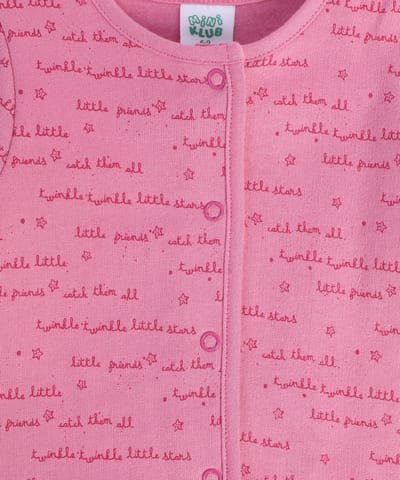 mini
KLUB
twinkle twinkle little stars
little stars
little friends catch them all
catch them all
twinkle little
twinkle
twinkle little
friends catch them all
little friends
twinkle twinkle little stars
little stars
little friends catch them
catch them all
twinkle little
twinkle
twinkle little
friends catch them all
little friends
twinkle twinkle little stars
little stars
little friends catch them
catch them all
twinkle little
twinkle
twinkle little
friends catch them all
little friends
twinkle twinkle little stars
little stars